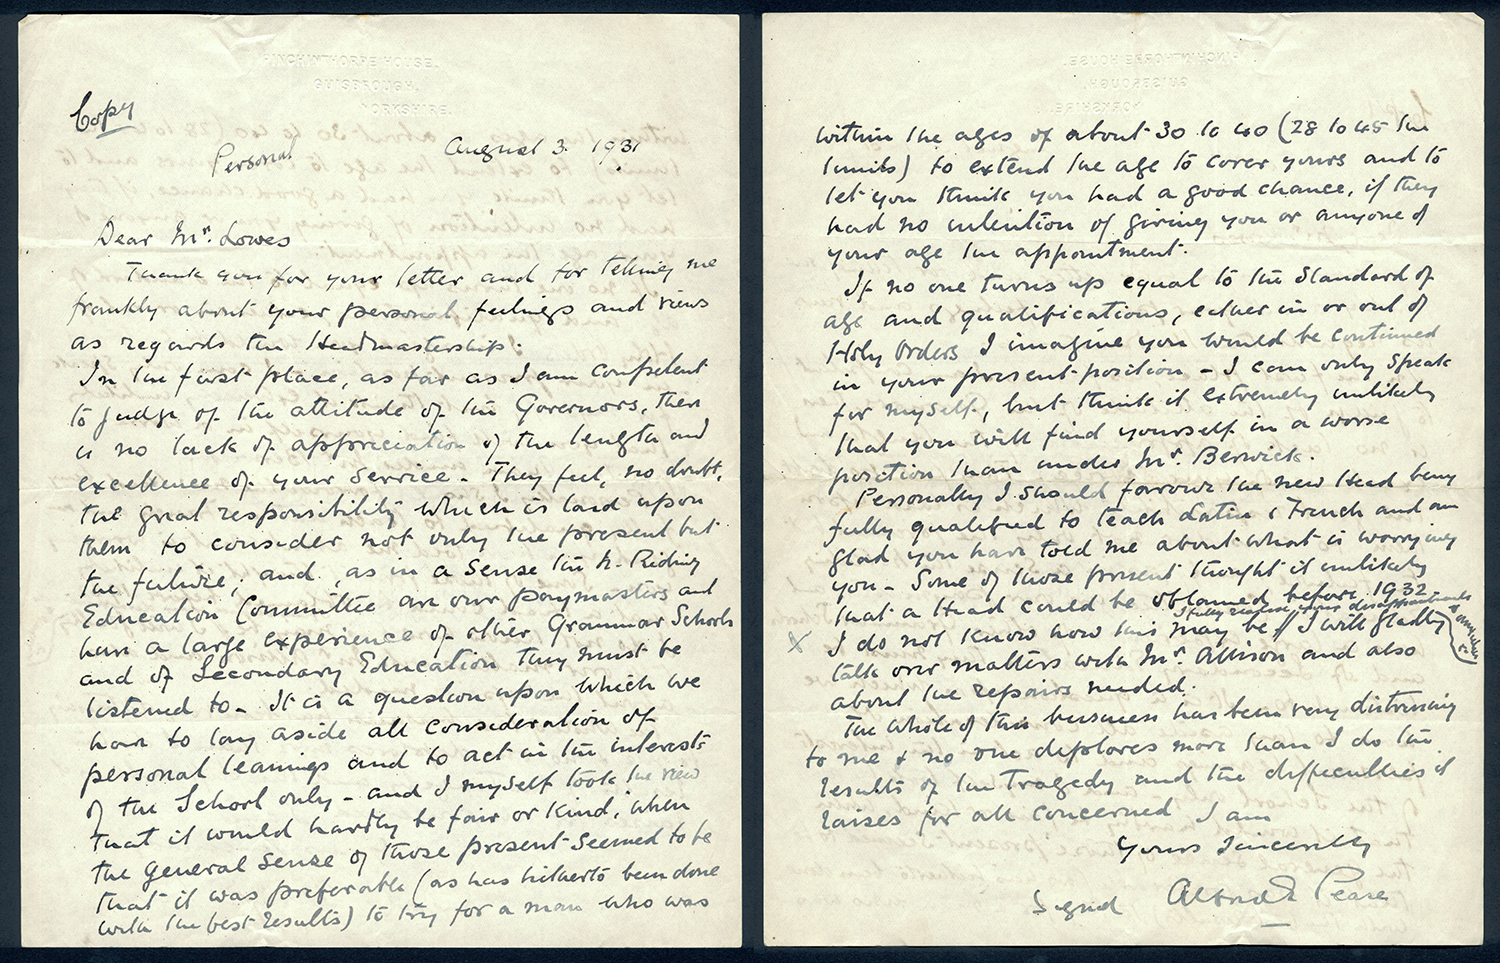 PINCHINTHORPE HOUSE.
GUISBROUGH.
YORKSHIRE.
Copy
Personal
August 3. 1931
Dear Mr. Lowes
Thank you for your letter and for telling me
frankly about your personal feelings and views
as regards the Headmastership.
In the first place, as far as I am competent
to judge of the attitude of the Governors, there
is no lack of appreciation of the length and
excellence of your service - They feel, no doubt,
the great responsibility which is laid upon
them to consider not only the present but
the future, and, as in a sense the N. Riding
Education Committee are our paymasters and
have a large experience of other Grammar Schools
and of Secondary Education they must be
listened to - It is a question upon which we
have to lay aside all consideration of
personal leanings and to act in the interests
of the School only - and I myself took the view
that it would hardly be fair or kind, when
the general sense of those present seemed to be
that it was preferable (as has hitherto been done
with the best results) to try for a man who was
within the ages of about 30 to 40 (28 to 45 the
limits) to extend the age to cover yours and to
let you think you had a good chance, if they
had no intention of giving you or anyone of
your age the appointment.
If no one turns up equal to the Standard of
age and qualifications, either in or out of
Holy Orders I imagine you would be continued
in your present position - I can only speak
for myself, but think it extremely unlikely
that you will find yourself in a worse
position than under Mr. Berwick.
Personally I should favour the new Head being
fully qualified to teach Latin & French and am
glad you have told me about what is worrying
you - Some of those present thought it unlikely
that a Head could be obtained before 1932
I fully realise your disappointments
X I do not know how this may be // I will gladly
talk over matters with Mr. Allison and also
about the repairs needed.
The whole of this business has been very distressing
to me & no one deplores more than I do the
results of the Tragedy and the difficulties it
raises for all concerned I am
Yours Sincerely
Signed Alfred E Pease